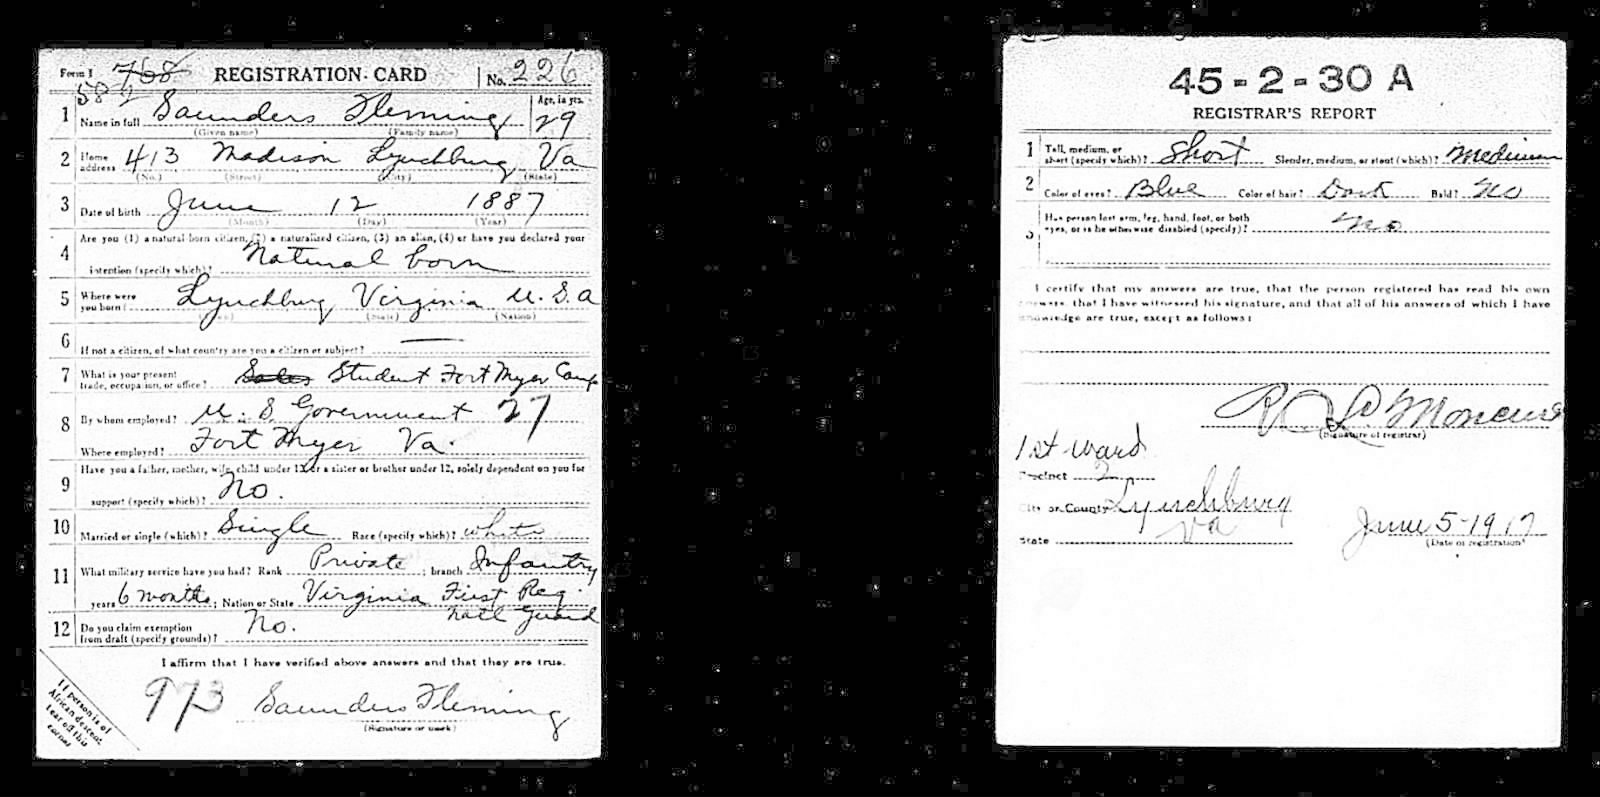 Form 1 768 REGISTRATION CARD No. 226
58
1 Name in full Saunders Fleming Age, in yrs. 29
(Given name) (Family name)
2 Home address 413 Madison Lynchburg Va
(No.) (Street) (City) (State)
3 Date of birth June 12 1887
(Month) (Day) (Year)
4 Are you (1) a natural-born citizen, (2) a naturalized citizen, (3) an alien, (4) or have you declared your
intention (specify which)? Natural born
5 Where were you born? Lynchburg Virginia U.S.A
(Town) (State) (Nation)
6 If not a citizen, of what country are you a citizen or subject? —
7 What is your present trade, occupation, or office? Sales Student Fort Myer Camp
8 By whom employed? U.S. Government 27
Where employed? Fort Myer Va.
9 Have you a father, mother, wife, child under 12, or a sister or brother under 12, solely dependent on you for
support (specify which)? No.
10 Married or single (which)? Single Race (specify which)? white
11 What military service have you had? Rank Private ; branch Infantry
years 6 months ; Nation or State Virginia First Reg.
Natl Guard
12 Do you claim exemption from draft (specify grounds)? No.
I affirm that I have verified above answers and that they are true.
973 Saunders Fleming
(Signature or mark)
If person is of
African descent
tear off this
corner
45-2-30 A
REGISTRAR'S REPORT
1 Tall, medium, or short (specify which)? Short Slender, medium, or stout (which)? Medium
2 Color of eyes? Blue Color of hair? Dark Bald? No
3 Has person lost arm, leg, hand, foot, or both
eyes, or is he otherwise disabled (specify)? No
I certify that my answers are true, that the person registered has read his own
answers, that I have witnessed his signature, and that all of his answers of which I have
knowledge are true, except as follows:
(Signature of registrar)
1st ward
Precinct 2
City or County Lynchburg
State Va
June 5-1917
(Date of registration)